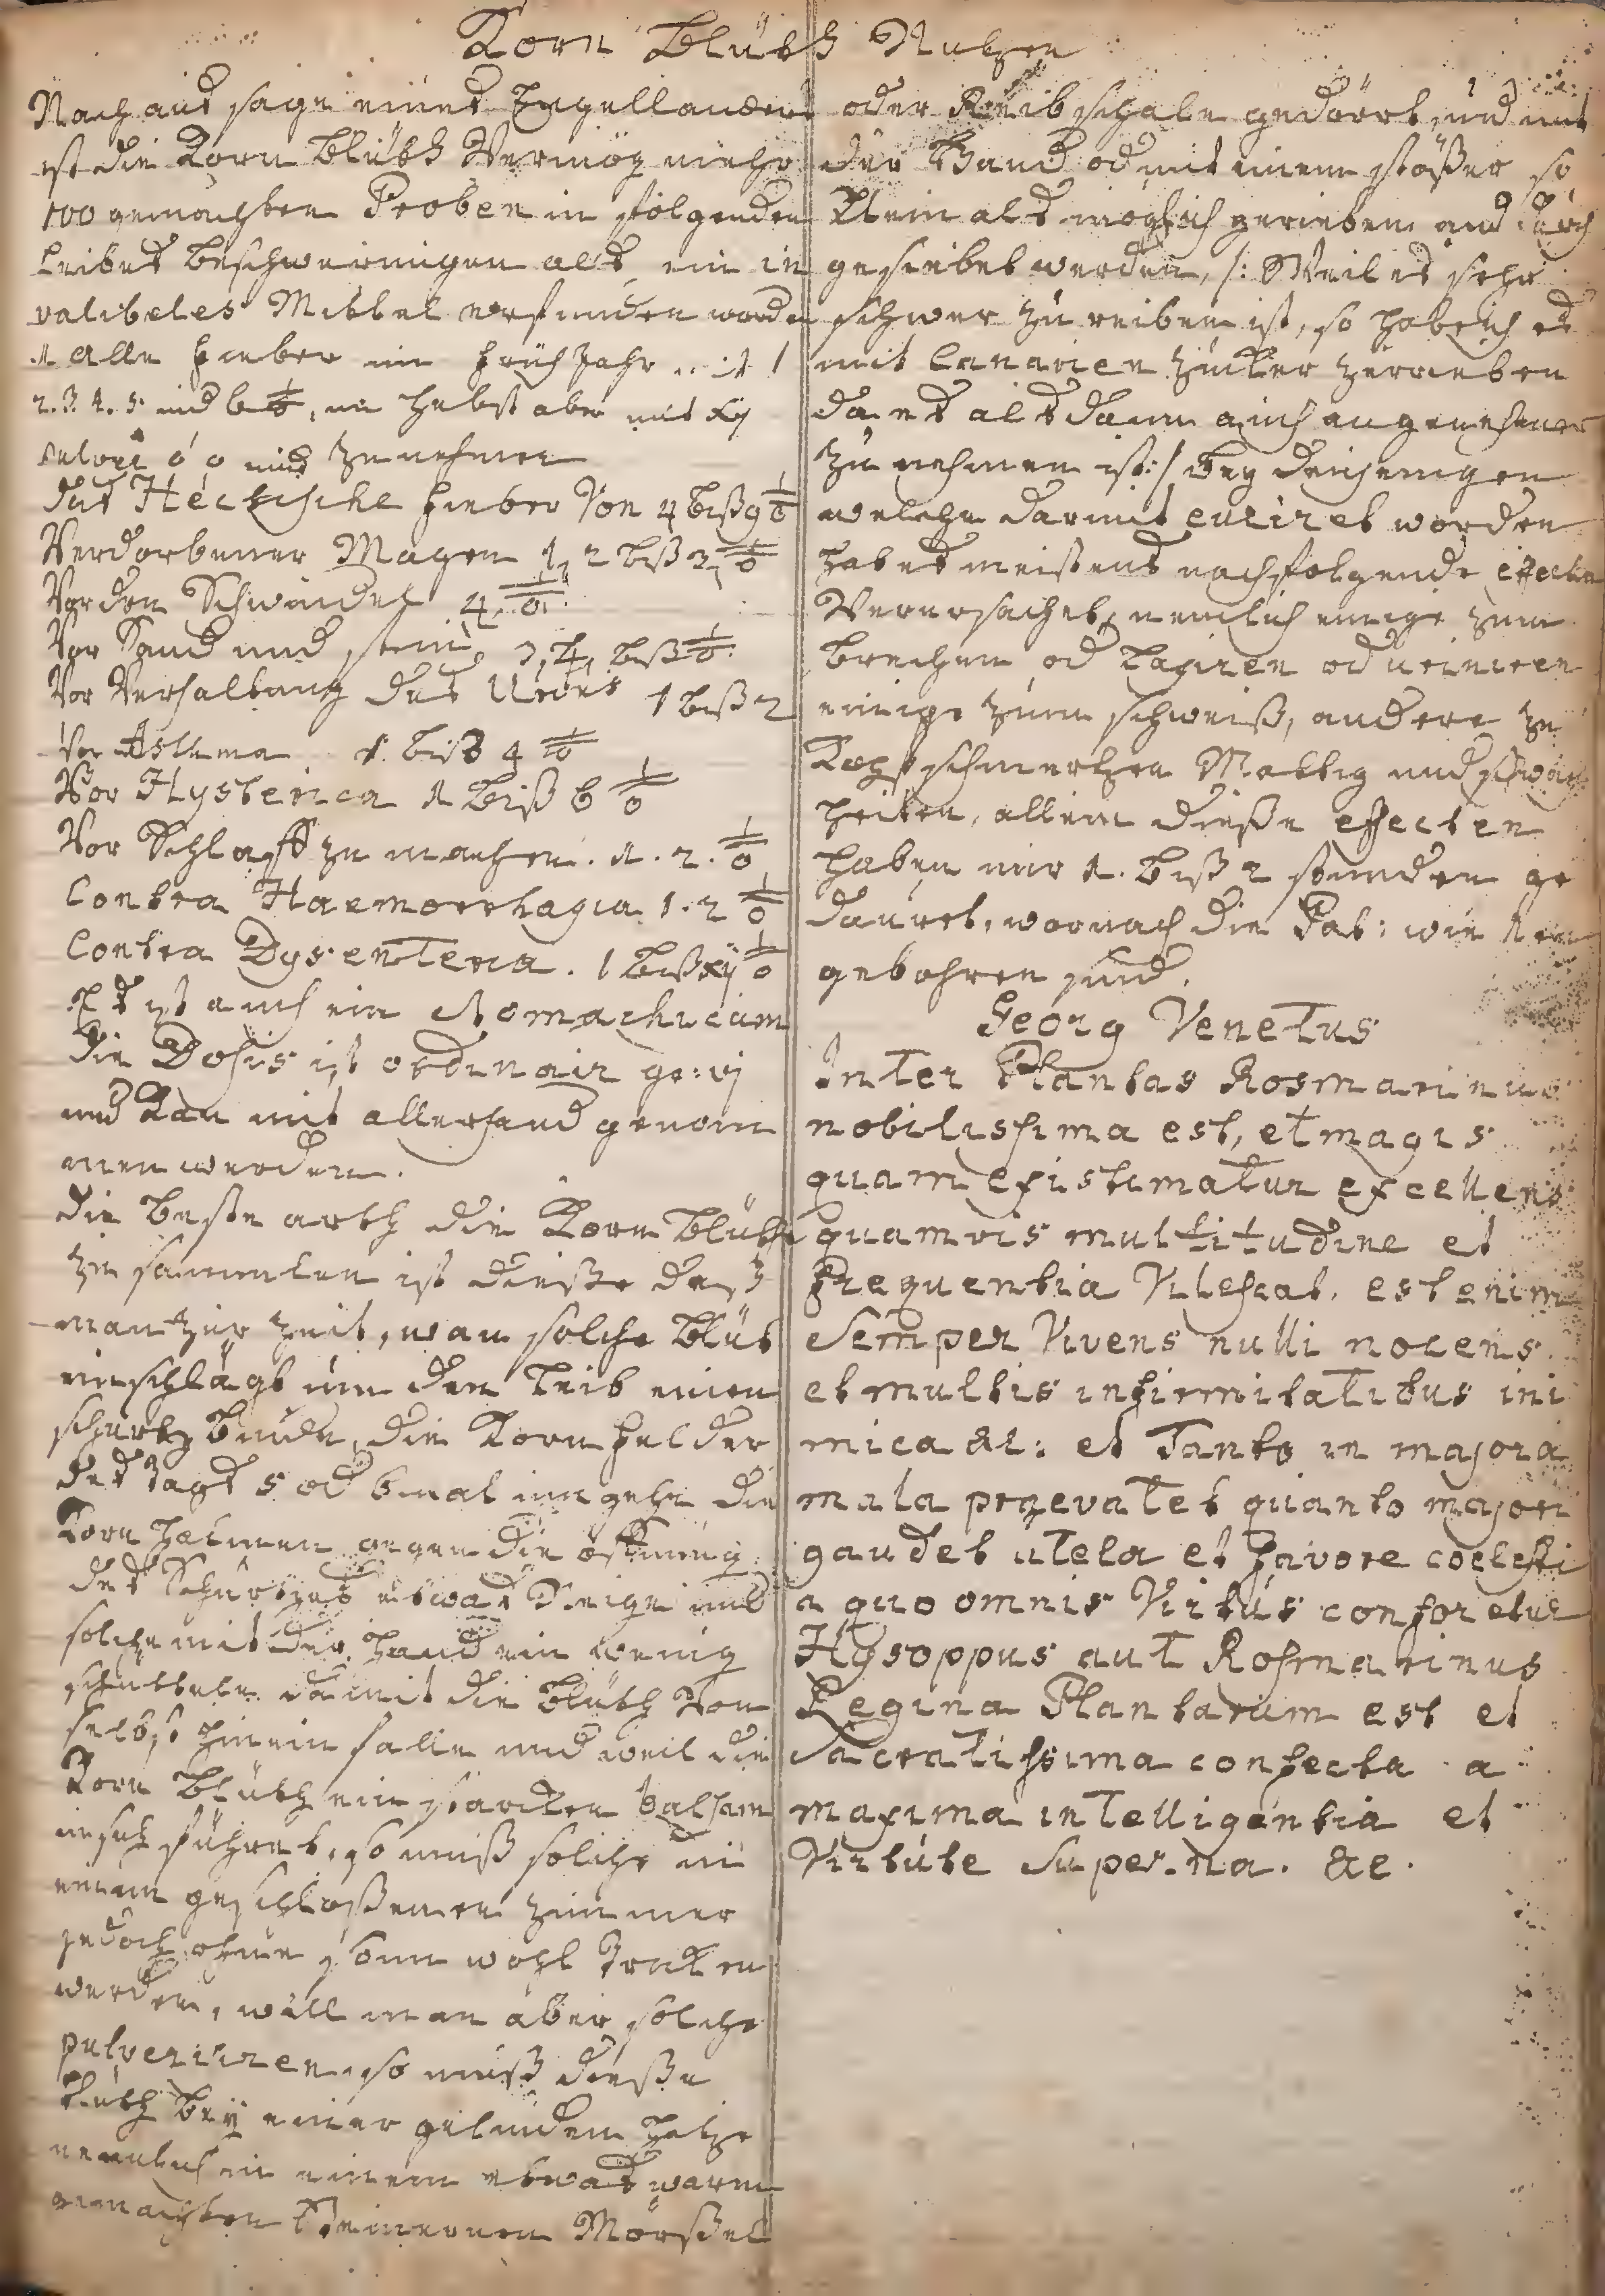 Korn Blüth Nutzen
Nach aus sage eines Engellanders
ist die Korn Blüth Vermög mehr
100 gemachten Proben in folgenden
Leibes Beschwerungen als ein in
valibeles Mittel erfunden worden
1 Alle Fieber im Früh Jahr mit 1
2. 3. 4. 5 und 6, im Herbst aber mit xij
zu nehmen
das Hectische Fieber Von 4 biß 9
Verdorbener Magen 1, 2 biß 3
Vor den Schwindel 4
Vor Sand und stein 3, 4, biß
Vor Verhaltung des Urins 1 biß 2
Vor Asthma 1 biß 4
Vor Hysterica 1 biß 6
Vor Schlaff zu machen. 1. 2.
Contra Haemorrhagia 1. 2
Contra Dysenteria. 1 biß xij
Es ist auch ein stomachicum
die Dosis ist ordinair gr: vj
und Kan mit allerhand genom
men werden.
die beste arth die Korn Blüth
zu samlen ist dieße daß
man zur Zeit, wan solche blüt
einschlägt um den Leib einen
schurtz binde, die Korn Felder
des Tags 5 od 6 mal umgehe die
Korn halmen gegen die öffnung
des Schurtzes etwas Neige und
solche mit der Hand ein wenig
schüttele damit die Blüth Von
selbst hinein falle und weil die
Korn Blüth ein starcken Balsam
in sich führet, so muß solche in
einem geschloßenen Zimmer
jedoch ohne sonn wohl Truken
werden, will man aber solche
pulverisiren, so muß dieße
Blüth bey einer gelinden Hitze
nemlich in einem etwas warm
gemachten steinernen Mörßel
oder Reib schale gedörrt und mit
der Hand od mit einem stößer so
Klein als möglich gerieben und durch
gesiebet werden, /: Weil es sehr
schwer zu reiben ist, so habe ich es
mit Canarien Zucker zerrieben
da es als dann auch angenehmer
zu nehmen ist :/ Bey denjenigen
welche darmit curiret worden
hat es meistens nachfolgende effecten
Verursachet, nemlich einige zum
brechen od Laxiren od uriniren
einige zum schweiß, andere zu
Kopf schmertzen Mattig und schwach
heiten, allein dieße effecten
haben nur 1. biß 2 stunden ge
dauret, wornach die Pat: wie Neu
gebohren sind.
Georg Venetus
Inter Plantas Rosmarinus
nobilissima est, et magis
quam existimatur excellens
quamvis multitudine et
frequentia Vilescat. est enim
semper Vivens nulli nocens
et multis infirmitatibus ini
mica &c: et Tanto in majora
mala praevalet quanto majori
gaudet utela et favore coelesti
a quo omnis Virtus conforetur
Hysoppus aut Rosmarinus
Regina Plantarum est et
Sacratissima confecta a
maxima intelligentia et
Virtute Superna. &c.